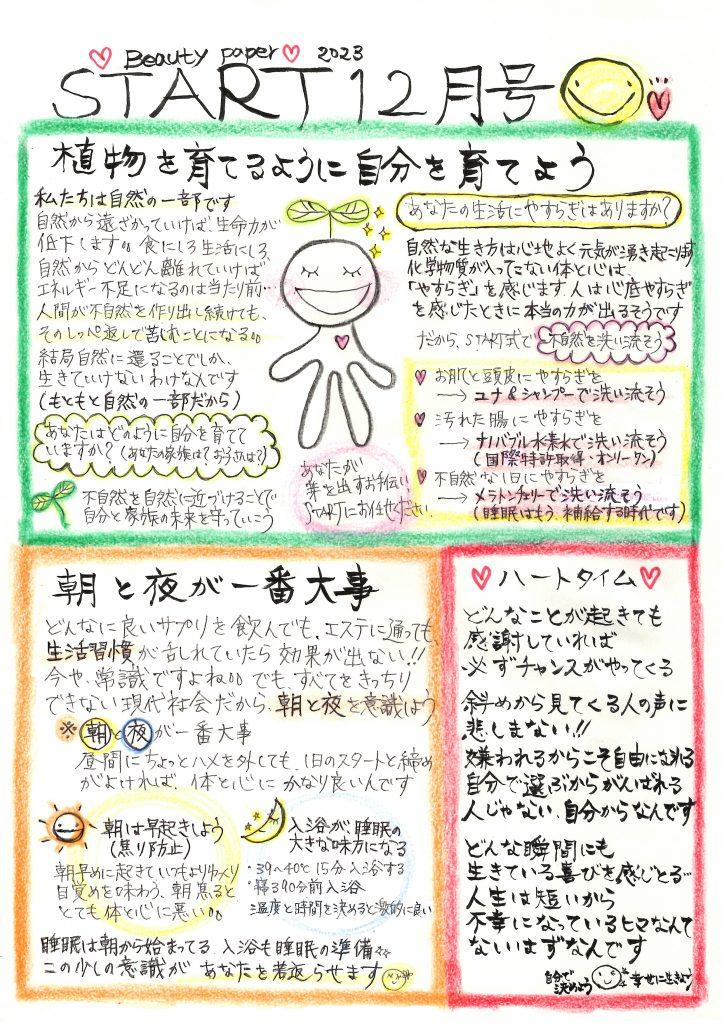 Beauty paper 2023
START 12月号
植物を育てるように自分を育てよう
私たちは自然の一部です
自然から遠ざかっていけば、生命力が
低下します。食にしろ生活にしろ、
自然からどんどん離れていけば
エネルギー不足になるのは当たり前…
人間が不自然を作り出し続けても、
そのしっぺ返しで苦しむことになる。
結局自然に還ることでしか、
生きていけないわけなんです
(もともと自然の一部だから)
あなたはどのように自分を育てて
いますか?(あなたの家族は?お子さんは?)
不自然を自然に近づけることで
自分と家族の未来を守っていこう
あなたが
芽を出すお手伝い
STARTにお任せください
あなたの生活にやすらぎはありますか?
自然な生き方は心地よく元気が湧き起こります
化学物質が入ってこない体と心は、
「やすらぎ」を感じます。人は心底やすらぎ
を感じたときに本当の力が出るそうです
だから、START式で不自然を洗い流そう
お肌と頭皮にやすらぎを
→ ユナ&シャンプーで洗い流そう
汚れた腸にやすらぎを
→ ナノバブル水素水で洗い流そう
(国際特許取得・オンリーワン)
不自然な日にやすらぎを
→ メラトンチェリーで洗い流そう
(睡眠はもう、補給する時代です)
朝と夜が一番大事
どんなに良いサプリを飲んでも、エステに通っても、
生活習慣が乱れていたら効果が出ない!!
今や、常識ですよね。でもすべてをきっちり
できない現代社会だから、朝と夜を意識しよう
※朝と夜が一番大事
昼間にちょっとハメを外しても、1日のスタートと締め
がよければ、体と心にかなり良いんです
朝は早起きしよう
(焦り防止)
朝早めに起きていつもよりゆっくり
目覚めを味わう、朝焦ると
とても体と心に悪い。
入浴が睡眠の
大きな味方になる
・39〜40℃ 15分入浴する
・寝る90分前入浴
温度と時間を決めると劇的に良い
睡眠は朝から始まってる、入浴も睡眠の準備
この少しの意識が あなたを若返らせます
ハートタイム
どんなことが起きても
感謝していれば
必ずチャンスがやってくる
斜めから見てくる人の声に
悲しまない!!
嫌われるからこそ自由になれる
自分で選ぶからがんばれる
人じゃない、自分からなんです
どんな瞬間にも
生きている喜びを感じとる
人生は短いから
不幸になっているヒマなんて
ないはずなんです
自分で
決めよう
幸せに生きよう